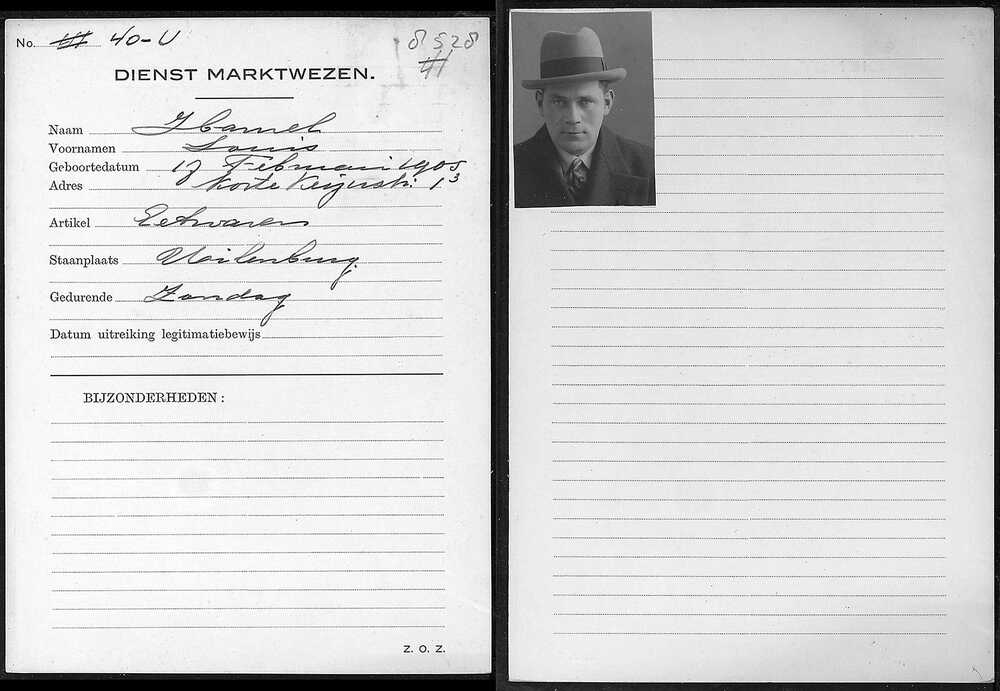 No. 40-U
8528
DIENST MARKTWEZEN.
Naam Hamel
Voornamen Louis
Geboortedatum 17 Februari 1905
Adres Korte Keizerstr. 1³
Artikel Eetwaren
Staanplaats Uilenburg.
Gedurende Zondag
Datum uitreiking legitimatiebewijs
BIJZONDERHEDEN:
Z. O. Z.